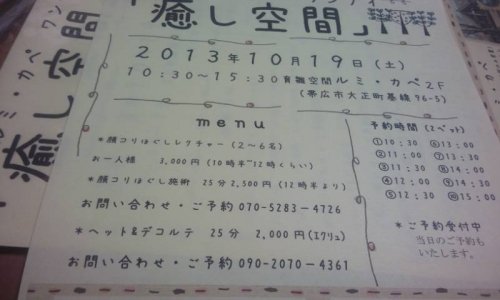 「癒し空間」
2013年10月19日(土)
10:30~15:30 育雛空間ルミ・カペ2F
(帯広市大正町基線96-5)
menu
*顔コリほぐしレクチャー(2~6名)
お一人様 3,000円(10時半~12時くらい)
*顔コリほぐし施術 25分2,500円(12時半より)
お問い合わせ・ご予約 070-5283-4726
*ヘット&デコルテ 25分 2,000円(エクリュ)
お問い合わせ・ご予約 090-2070-4361
予約時間(2ベット)
①10:30 ⑥13:00
②11:00 ⑦13:30
③11:30 ⑧14:00
④12:00 ⑨14:30
⑤12:30 ⑩15:00
*ご予約受付中
当日のご予約も
いたします。
ミ・カペ ワン
癒し空間